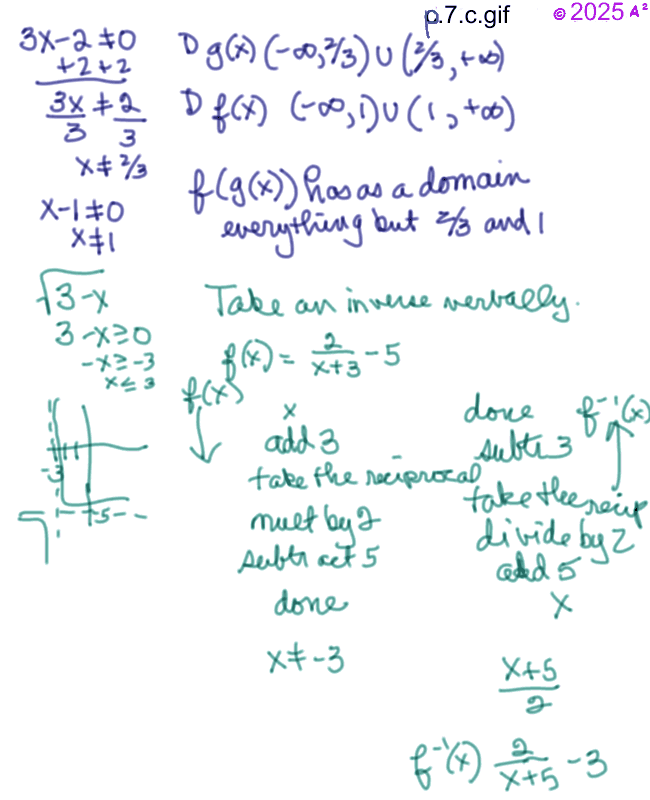 p.7.c.gif
© 2025 A²
3x-2≠0
+2 +2
3x/3 ≠ 2/3
x≠2/3
x-1≠0
x≠1
D g(x) (-∞,2/3) ∪ (2/3,+∞)
D f(x) (-∞,1) ∪ (1,+∞)
f(g(x)) has as a domain
everything but 2/3 and 1
√3-x
3-x≥0
-x≥-3
x≤3
-3
-5
Take an inverse verbally.
f(x) = 2/(x+3) -5
f(x)
x
add 3
take the reciprocal
mult by 2
subtract 5
done
x≠-3
done f⁻¹(x)
subtr 3
take the recip
divide by 2
add 5
x
(x+5)/2
f⁻¹(x) 2/(x+5) -3